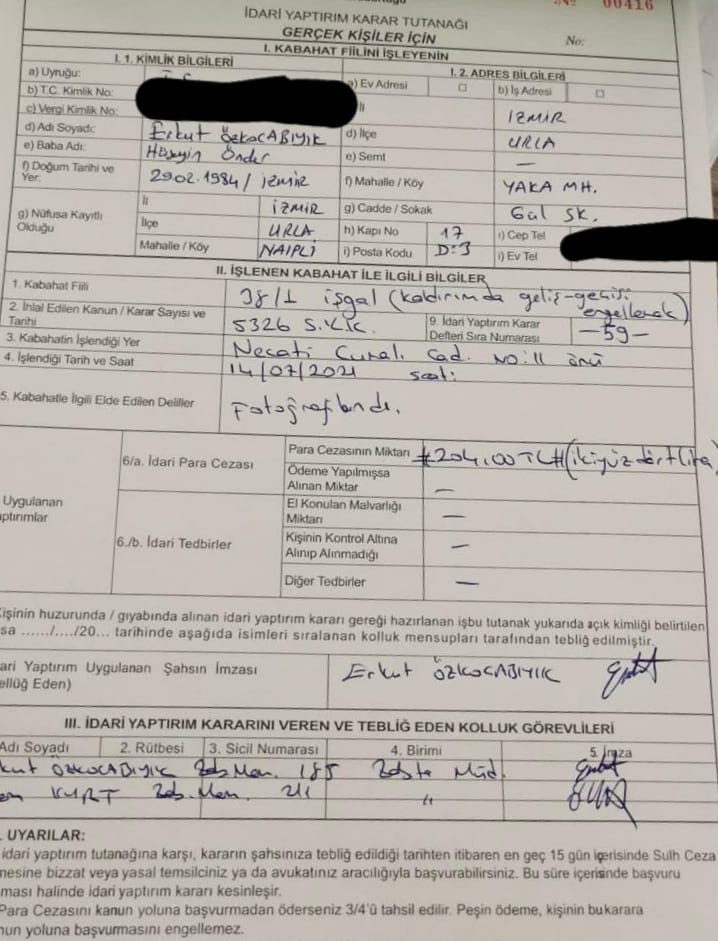 No 00416
İDARİ YAPTIRIM KARAR TUTANAĞI
GERÇEK KİŞİLER İÇİN
No:
I. KABAHAT FİİLİNİ İŞLEYENİN
I. 1. KİMLİK BİLGİLERİ
I. 2. ADRES BİLGİLERİ
a) Uyruğu:
a) Ev Adresi □ b) İş Adresi □
b) T.C. Kimlik No:
c) Vergi Kimlik No:
İl İZMİR
d) Adı Soyadı: Erkut ÖZKOCABIYIK
d) İlçe URLA
e) Baba Adı: Hüseyin Önder
e) Semt —
f) Doğum Tarihi ve Yer: 29.02.1984 / İZMİR
f) Mahalle / Köy YAKA MH.
g) Nüfusa Kayıtlı Olduğu
İl İZMİR
g) Cadde / Sokak Gül SK.
İlçe URLA
h) Kapı No 17
ı) Cep Tel
Mahalle / Köy NAİPLİ
i) Posta Kodu D:3
i) Ev Tel
II. İŞLENEN KABAHAT İLE İLGİLİ BİLGİLER
1. Kabahat Fiili 38/1 işgal (kaldırımda geliş-geçişi engellenerek)
2. İhlal Edilen Kanun / Karar Sayısı ve Tarihi 5326 S.K.K.
9. İdari Yaptırım Karar Defteri Sıra Numarası —59—
3. Kabahatin İşlendiği Yer Necati Cumalı Cad. NO:11 önü
4. İşlendiği Tarih ve Saat 14/07/2021 saat:
5. Kabahatle İlgili Elde Edilen Deliller Fotoğraflandı.
Uygulanan
6/a. İdari Para Cezası
Para Cezasının Miktarı #204,00 TL# (ikiyüzdörtlira)
Ödeme Yapılmışsa Alınan Miktar —
6./b. İdari Tedbirler
El Konulan Malvarlığı Miktarı —
Kişinin Kontrol Altına Alınıp Alınmadığı —
Diğer Tedbirler —
Kişinin huzurunda / gıyabında alınan idari yaptırım kararı gereği hazırlanan işbu tutanak yukarıda açık kimliği belirtilen
....../..../20... tarihinde aşağıda isimleri sıralanan kolluk mensupları tarafından tebliğ edilmiştir.
Yaptırım Uygulanan Şahsın İmzası
Eden)
Erkut ÖZKOCABIYIK
III. İDARİ YAPTIRIM KARARINI VEREN VE TEBLİĞ EDEN KOLLUK GÖREVLİLERİ
Adı Soyadı 2. Rütbesi 3. Sicil Numarası 4. Birimi 5. İmza
ÖZKOCABIYIK Zab. Mem. 185 Zabıta Müd.
KURT Zab. Mem. 211 "
UYARILAR:
idari yaptırım tutanağına karşı, kararın şahsınıza tebliğ edildiği tarihten itibaren en geç 15 gün içerisinde Sulh Ceza
bizzat veya yasal temsilciniz ya da avukatınız aracılığıyla başvurabilirsiniz. Bu süre içerisinde başvuru
halinde idari yaptırım kararı kesinleşir.
Para Cezasını kanun yoluna başvurmadan öderseniz 3/4'ü tahsil edilir. Peşin ödeme, kişinin bu karara
yoluna başvurmasını engellemez.